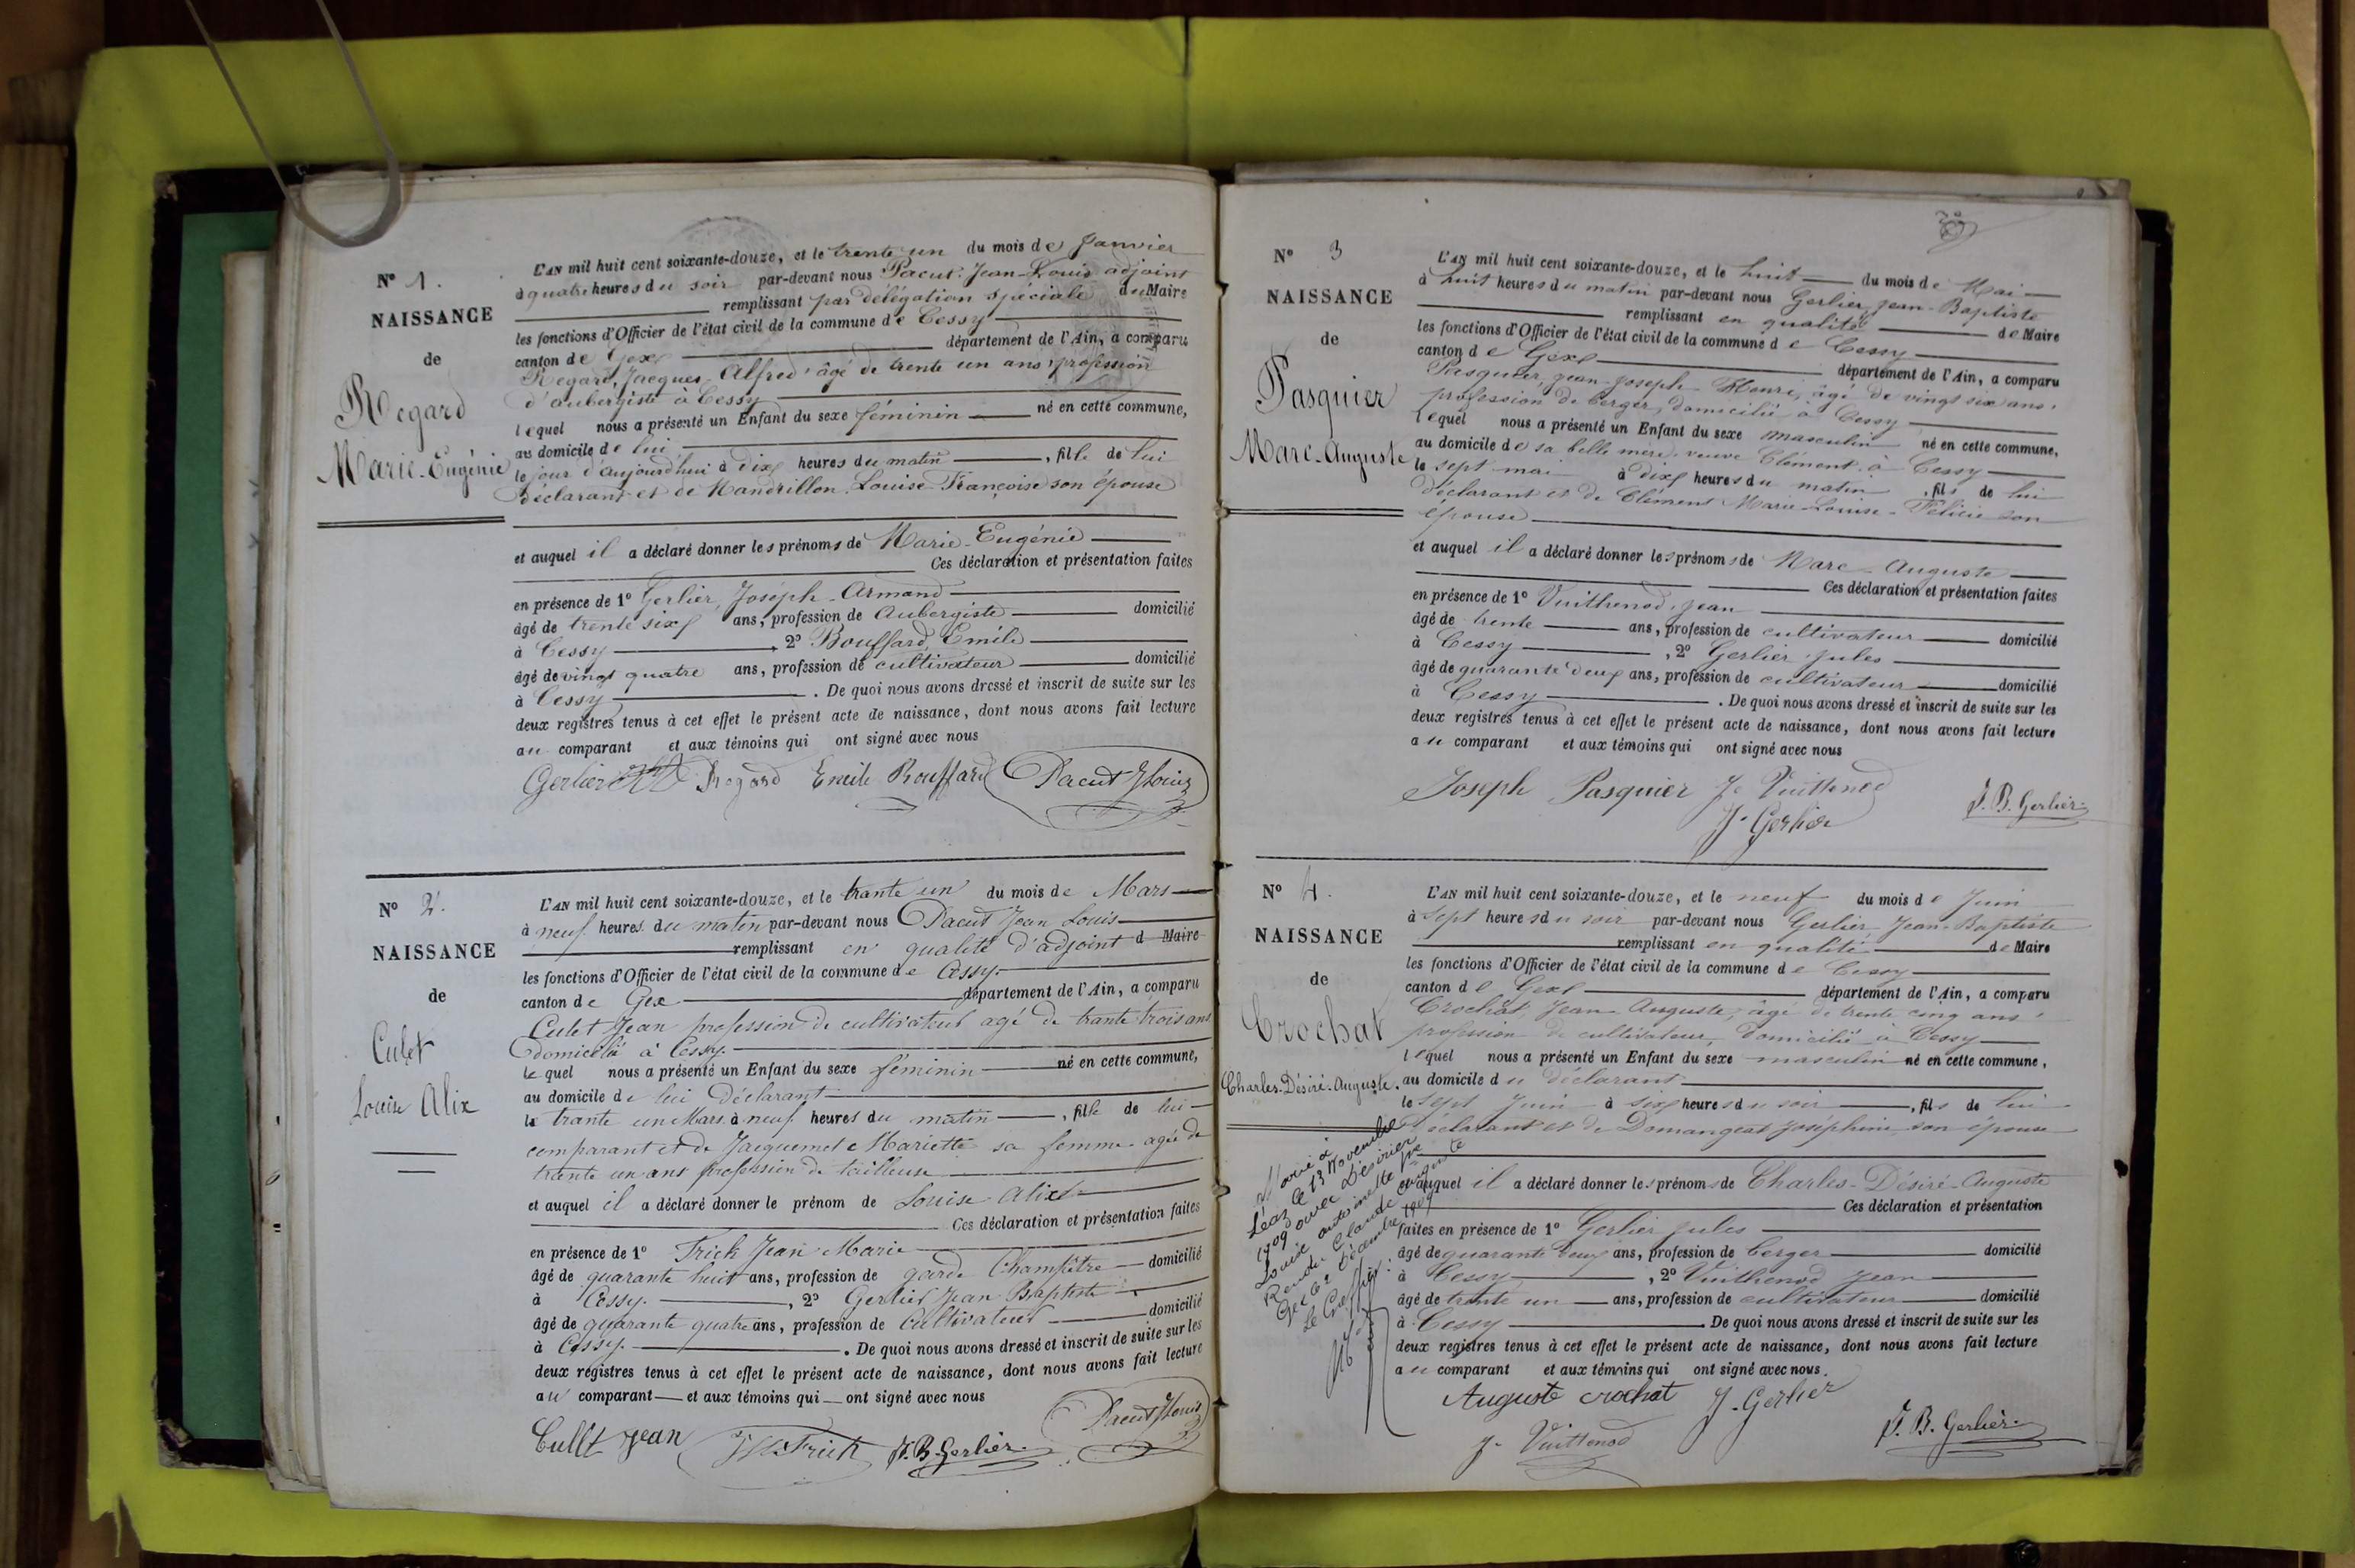 N° 1.
NAISSANCE
de
Regard
Marie-Eugénie
L'AN mil huit cent soixante-douze, et le trente un du mois de Janvier
à quatre heures du soir par-devant nous Pacut Jean-Louis adjoint
remplissant par délégation spéciale du Maire
les fonctions d'Officier de l'état civil de la commune de Cessy
canton de Gex département de l'Ain, a comparu
Regard, Jacques Alfred âgé de trente un ans profession
d'aubergiste à Cessy
lequel nous a présenté un Enfant du sexe féminin né en cette commune,
au domicile de lui
le jour d'aujourd'hui à dix heures du matin, fille de lui
déclarant et de Mandrillon Louise Françoise son épouse
et auquel il a déclaré donner les prénoms de Marie-Eugénie
Ces déclaration et présentation faites
en présence de 1° Gerlier, Joseph-Armand
âgé de trente six ans, profession de Aubergiste domicilié
à Cessy, 2° Bouffard, Emile
âgé de vingt quatre ans, profession de cultivateur domicilié
à Cessy. De quoi nous avons dressé et inscrit de suite sur les
deux registres tenus à cet effet le présent acte de naissance, dont nous avons fait lecture
au comparant et aux témoins qui ont signé avec nous
Gerlier Regard Emile Bouffard Pacut JLouis
N° 2.
NAISSANCE
de
Culet
Louise Alix
L'AN mil huit cent soixante-douze, et le trante un du mois de Mars
à neuf heures du matin par-devant nous Pacut Jean Louis
remplissant en qualité d'adjoint d Maire
les fonctions d'Officier de l'état civil de la commune de Cessy
canton de Gex département de l'Ain, a comparu
Culet Jean profession de cultivateur agé de trante trois ans
domicilié à Cessy
lequel nous a présenté un Enfant du sexe féminin né en cette commune,
au domicile de lui Déclarant
le trante un Mars à neuf heures du matin, fille de lui
comparant et de Jacquemet Mariette sa femme agée de
trante un ans profession de tailleuse
et auquel il a déclaré donner le prénom de Louise Alix
Ces déclaration et présentation faites
en présence de 1° Frick Jean Marie
âgé de quarante huit ans, profession de garde Champêtre domicilié
à Cessy., 2° Gerlier Jean Baptiste
âgé de quarante quatre ans, profession de Cultivateur domicilié
à Cessy. De quoi nous avons dressé et inscrit de suite sur les
deux registres tenus à cet effet le présent acte de naissance, dont nous avons fait lecture
au comparant et aux témoins qui ont signé avec nous
Pacut JLouis
Cullt Jean Frick J.B. Gerlier
N° 3
NAISSANCE
de
Pasquier
Marc-Auguste
L'AN mil huit cent soixante-douze, et le huit du mois de Mai
à huit heures du matin par-devant nous Gerlier, Jean-Baptiste
remplissant en qualité de Maire
les fonctions d'Officier de l'état civil de la commune de Cessy
canton de Gex département de l'Ain, a comparu
Pasquier, Jean-Joseph-Henri, âgé de vingt six ans,
profession de berger, domicilié à Cessy
lequel nous a présenté un Enfant du sexe masculin né en cette commune,
au domicile de sa belle mère veuve Clément à Cessy
le sept mai à dix heures du matin, fils de lui
déclarant et de Clément Marie-Louise-Félicie son
épouse
et auquel il a déclaré donner les prénoms de Marc-Auguste
Ces déclaration et présentation faites
en présence de 1° Vuithenod, Jean
âgé de trente ans, profession de cultivateur domicilié
à Cessy, 2° Gerlier Jules
âgé de quarante deux ans, profession de cultivateur domicilié
à Cessy. De quoi nous avons dressé et inscrit de suite sur les
deux registres tenus à cet effet le présent acte de naissance, dont nous avons fait lecture
au comparant et aux témoins qui ont signé avec nous
Joseph Pasquier J. Vuittenod
J. Gerlier J.B. Gerlier
N° 4.
NAISSANCE
de
Crochat
Charles-Désiré-Auguste.
L'AN mil huit cent soixante-douze, et le neuf du mois de Juin
à sept heures du soir par-devant nous Gerlier, Jean-Baptiste
remplissant en qualité de Maire
les fonctions d'Officier de l'état civil de la commune de Cessy
canton de Gex département de l'Ain, a comparu
Crochat, Jean-Auguste, âgé de trente cinq ans,
profession de cultivateur, domicilié à Cessy
lequel nous a présenté un Enfant du sexe masculin né en cette commune,
au domicile du déclarant
le sept Juin à six heures du soir, fils de lui
déclarant et de Dumangeat Joséphine son épouse
et auquel il a déclaré donner les prénoms de Charles-Désiré-Auguste
Ces déclaration et présentation
faites en présence de 1° Gerlier Jules
âgé de quarante deux ans, profession de berger domicilié
à Cessy, 2° Vuithenod Jean
âgé de trente un ans, profession de cultivateur domicilié
à Cessy. De quoi nous avons dressé et inscrit de suite sur les
deux registres tenus à cet effet le présent acte de naissance, dont nous avons fait lecture
au comparant et aux témoins qui ont signé avec nous.
Auguste crochat J. Gerlier
J. Vuittenod J.B. Gerlier
Marié à
Léaz le 13 Novembre
1909 avec Désirier
Louise antoinette
Claude Auguste
Gex le 2 Décembre 1909
Le Greffier: